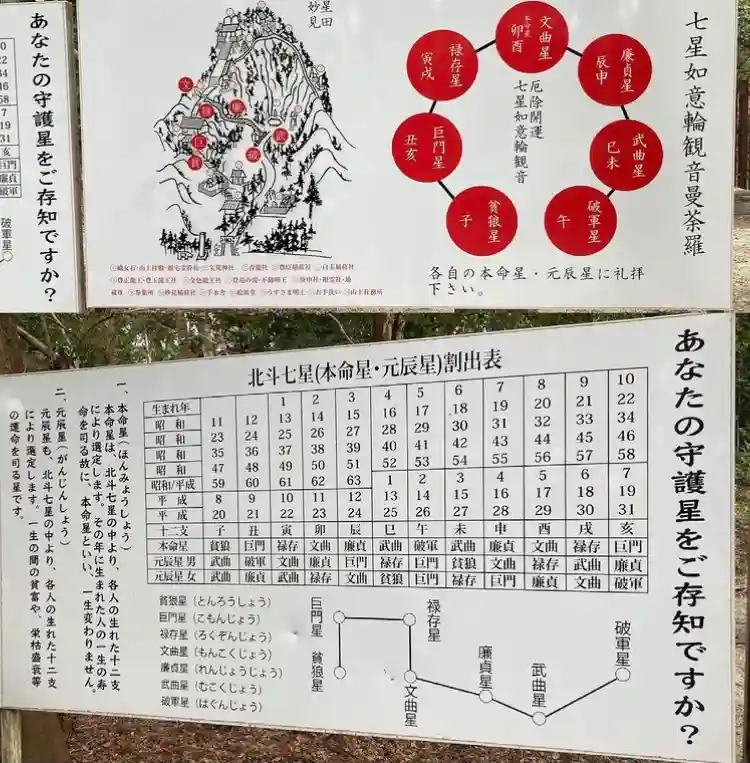 あなたの守護星をご存知ですか？
破軍星
星田
妙見
文
禄
廉
巨
武
貪
破
七星如意輪観音曼荼羅
文曲星
本命星
卯
酉
禄存星
寅
戌
廉貞星
辰
申
巨門星
丑
亥
武曲星
巳
未
貪狼星
子
破軍星
午
厄除開運
七星如意輪観音
各自の本命星・元辰星に礼拝
下さい。
あなたの守護星をご存知ですか？
北斗七星(本命星・元辰星)割出表
生まれ年 1 2 3 4 5 6 7 8 9 10
昭和 11 12 13 14 15 16 17 18 19 20 21 22
昭和 23 24 25 26 27 28 29 30 31 32 33 34
昭和 35 36 37 38 39 40 41 42 43 44 45 46
昭和 47 48 49 50 51 52 53 54 55 56 57 58
昭和/平成 59 60 61 62 63 1 2 3 4 5 6 7
平成 8 9 10 11 12 13 14 15 16 17 18 19
平成 20 21 22 23 24 25 26 27 28 29 30 31
十二支 子 丑 寅 卯 辰 巳 午 未 申 酉 戌 亥
本命星 貪狼 巨門 禄存 文曲 廉貞 武曲 破軍 武曲 廉貞 文曲 禄存 巨門
元辰星 男 武曲 破軍 文曲 廉貞 巨門 禄存 巨門 貪狼 文曲 禄存 武曲 廉貞
元辰星 女 武曲 廉貞 武曲 禄存 文曲 貪狼 巨門 禄存 巨門 廉貞 文曲 破軍
一、本命星(ほんみょうしょう)
本命星は、北斗七星の中より、各人の生れた十二支
により選定します。その年に生まれた人の一生の寿
命を司る故に、本命星といい、一生変わりません。
二、元辰星(がんじんしょう)
元辰星も、北斗七星の中より、各人の生れた十二支
により選定します。一生の間の貧富や、栄枯盛衰等
の運命を司る星です。
貪狼星(とんろうしょう)
巨門星(こもんじょう)
禄存星(ろくぞんじょう)
文曲星(もんこくじょう)
廉貞星(れんじょうじょう)
武曲星(むこくじょう)
破軍星(はぐんじょう)
巨門星
貪狼星
禄存星
文曲星
廉貞星
武曲星
破軍星